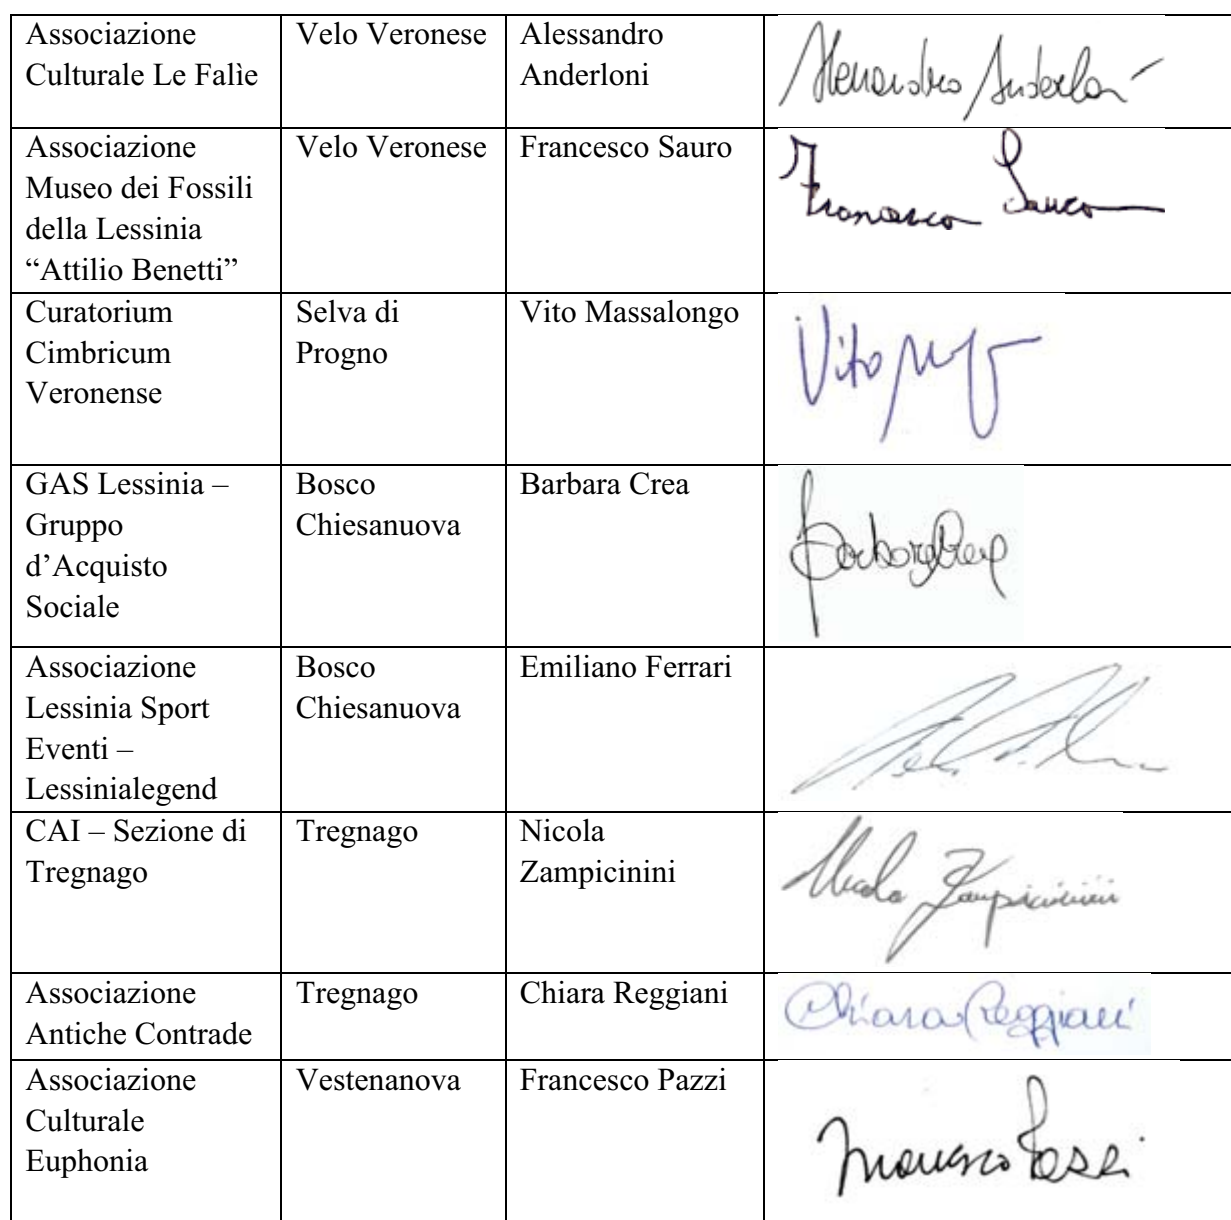 Associazione
Culturale Le Falìe
Velo Veronese
Alessandro
Anderloni
Alessandro Anderloni
Associazione
Museo dei Fossili
della Lessinia
“Attilio Benetti”
Velo Veronese
Francesco Sauro
Francesco Sauro
Curatorium
Cimbricum
Veronense
Selva di
Progno
Vito Massalongo
Vito
GAS Lessinia –
Gruppo
d’Acquisto
Sociale
Bosco
Chiesanuova
Barbara Crea
Barbara Crea
Associazione
Lessinia Sport
Eventi –
Lessinialegend
Bosco
Chiesanuova
Emiliano Ferrari
CAI – Sezione di
Tregnago
Tregnago
Nicola
Zampicinini
Nicola Zampicinini
Associazione
Antiche Contrade
Tregnago
Chiara Reggiani
Chiara Reggiani
Associazione
Culturale
Euphonia
Vestenanova
Francesco Pazzi
Francesco Pazzi